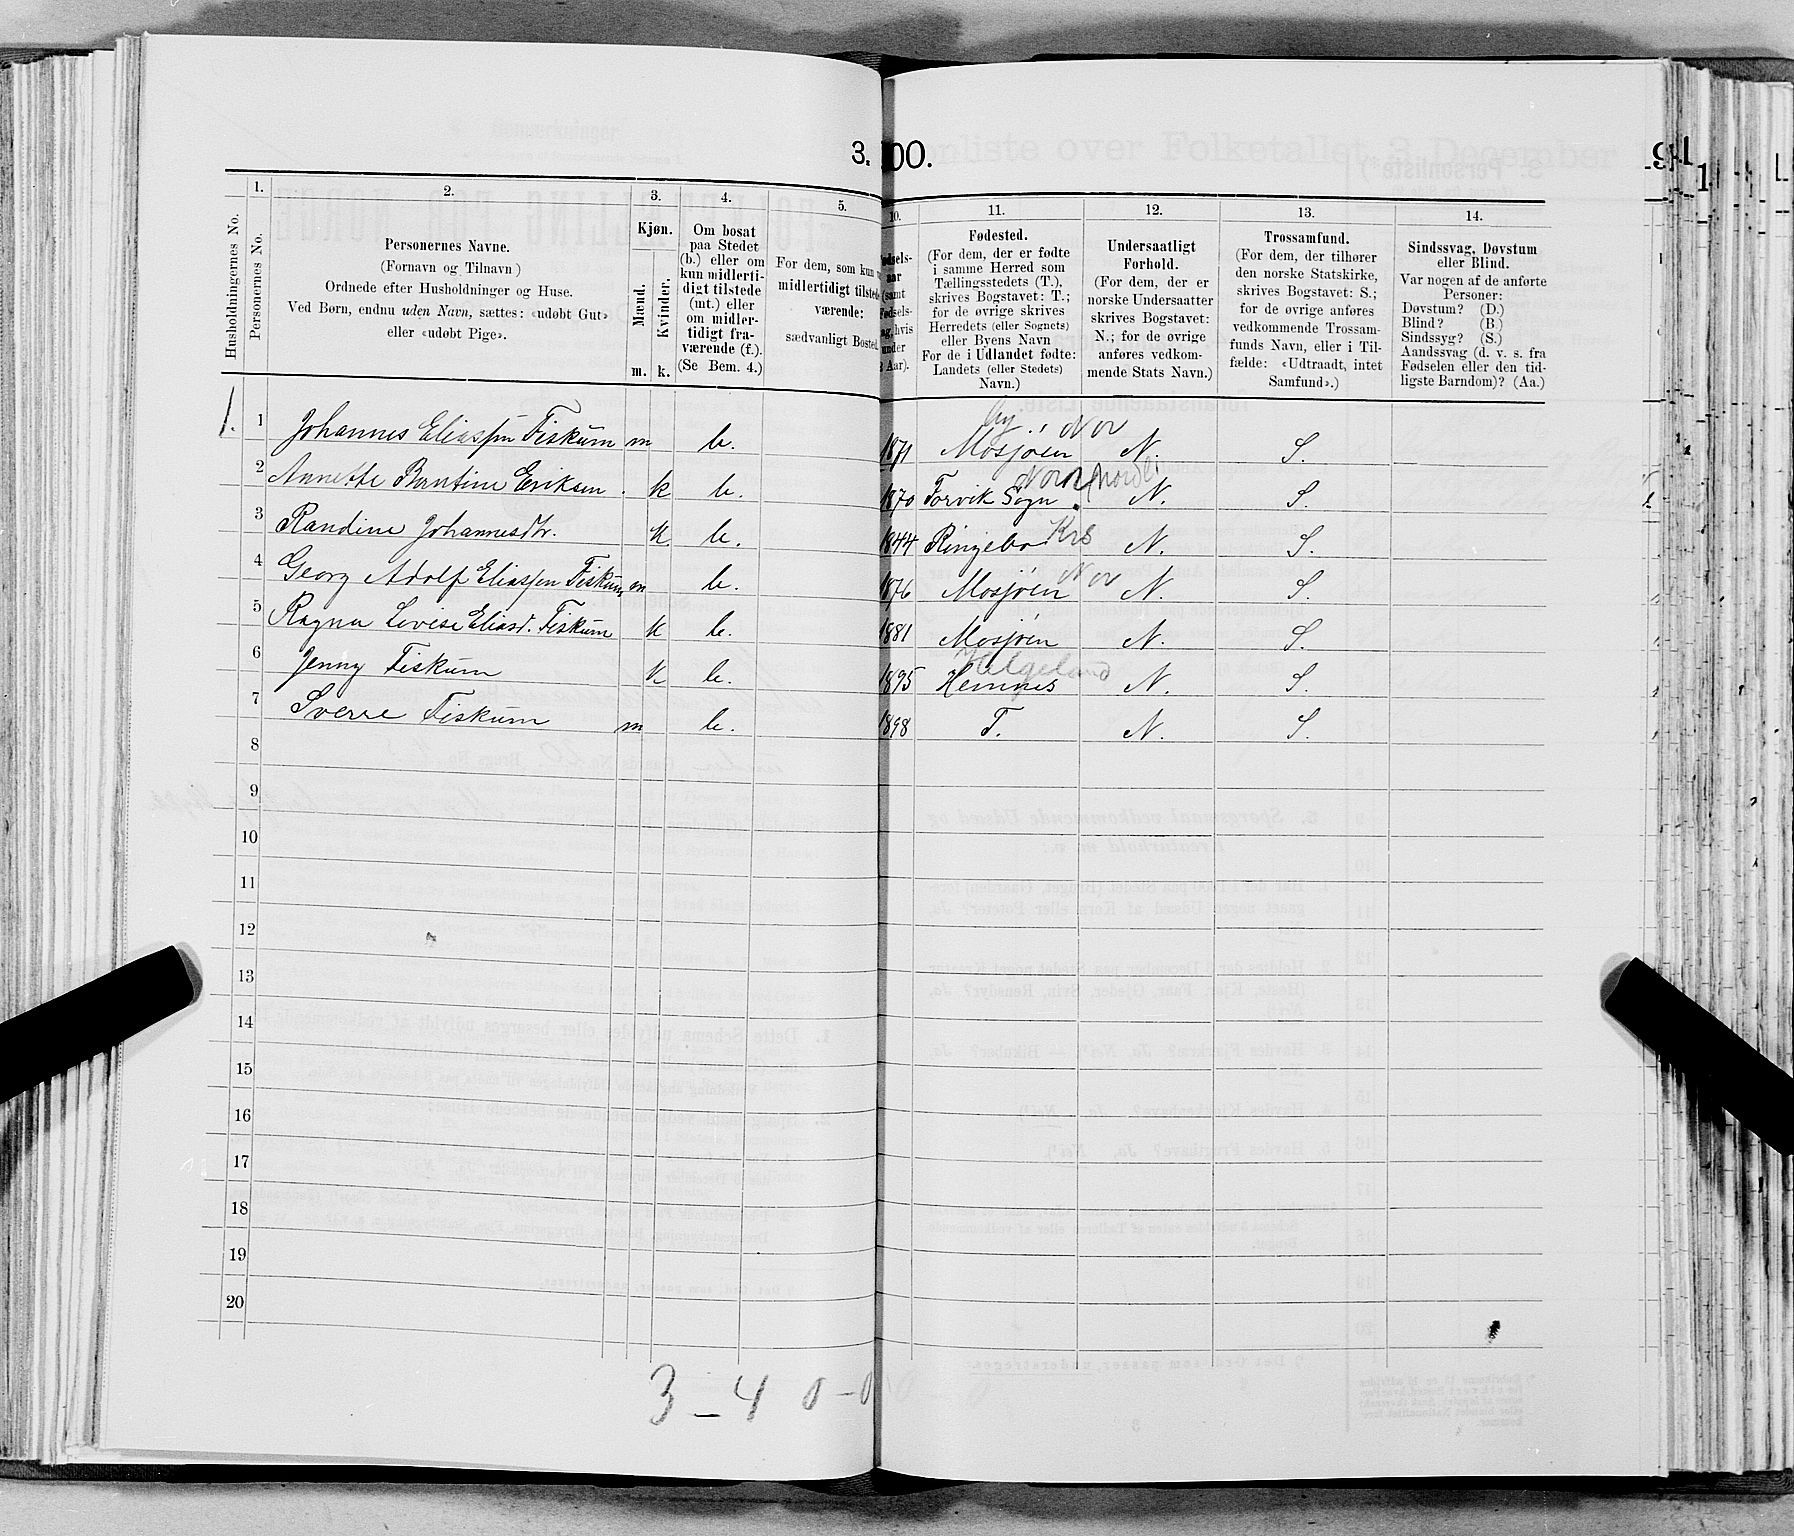 3.
00.
1.
2.
3.
4.
5.
10.
11.
12.
13.
14.
Husholdningernes No.
Personernes No.
Personernes Navne.
(Fornavn og Tilnavn)
Ordnede efter Husholdninger og Huse.
Ved Børn, endnu uden Navn, sættes: «udøbt Gut»
eller «udøbt Pige».
Kjøn.
Mænd.
Kvinder.
m. k.
Om bosat
paa Stedet
(b.) eller om
kun midlerti-
digt tilstede
(mt.) eller
om midler-
tidigt fra-
værende (f.).
(Se Bem. 4.)
For dem, som kun
midlertidigt tilstede
værende:
sædvanligt Bosted.
ødsels-
aar
(samt
ødsels-
ag, hvis
under
Aar).
Fødested.
(For dem, der er fødte
i samme Herred som
Tællingsstedets (T.),
skrives Bogstavet: T.;
for de øvrige skrives
Herredets (eller Sognets)
eller Byens Navn
For de i Udlandet fødte:
Landets (eller Stedets)
Navn.)
Undersaatligt
Forhold.
(For dem, der er
norske Undersaatter
skrives Bogstavet:
N.; for de øvrige
anføres vedkom-
mende Stats Navn.)
Trossamfund.
(For dem, der tilhører
den norske Statskirke,
skrives Bogstavet: S.;
for de øvrige anføres
vedkommende Trossam-
funds Navn, eller i Til-
fælde: «Udtraadt, intet
Samfund».)
Sindssvag, Døvstum
eller Blind.
Var nogen af de anførte
Personer:
Døvstum? (D.)
Blind? (B.)
Sindssyg? (S.)
Aandssvag (d. v. s. fra
Fødselen eller den tid-
ligste Barndom)? (Aa.)
by Nor
1. 1 Johannes Eliassen Fiskum m b. 1871 Mosjøen N. S.
Nordl
2 Annette Bentine Eriksen. k b. 1870 Forvik Sogn. N. S.
3 Randine Johannesdtr. k b. 1844 Ringebo Krs N. S.
4 Georg Adolf Eliassen Fiskum m b. 1876 Mosjøen Nor N. S.
5 Ragna Lovise Eliasd. Fiskum k b. 1881 Mosjøen N. S.
Helgeland
6 Jenny Fiskum k b. 1895 Hemnes N. S.
7 Sverre Fiskum m b. 1898 T. N. S.
8
9
10
11
12
13
14
15
16
17
18
19
20
3 – 4 0 – 0